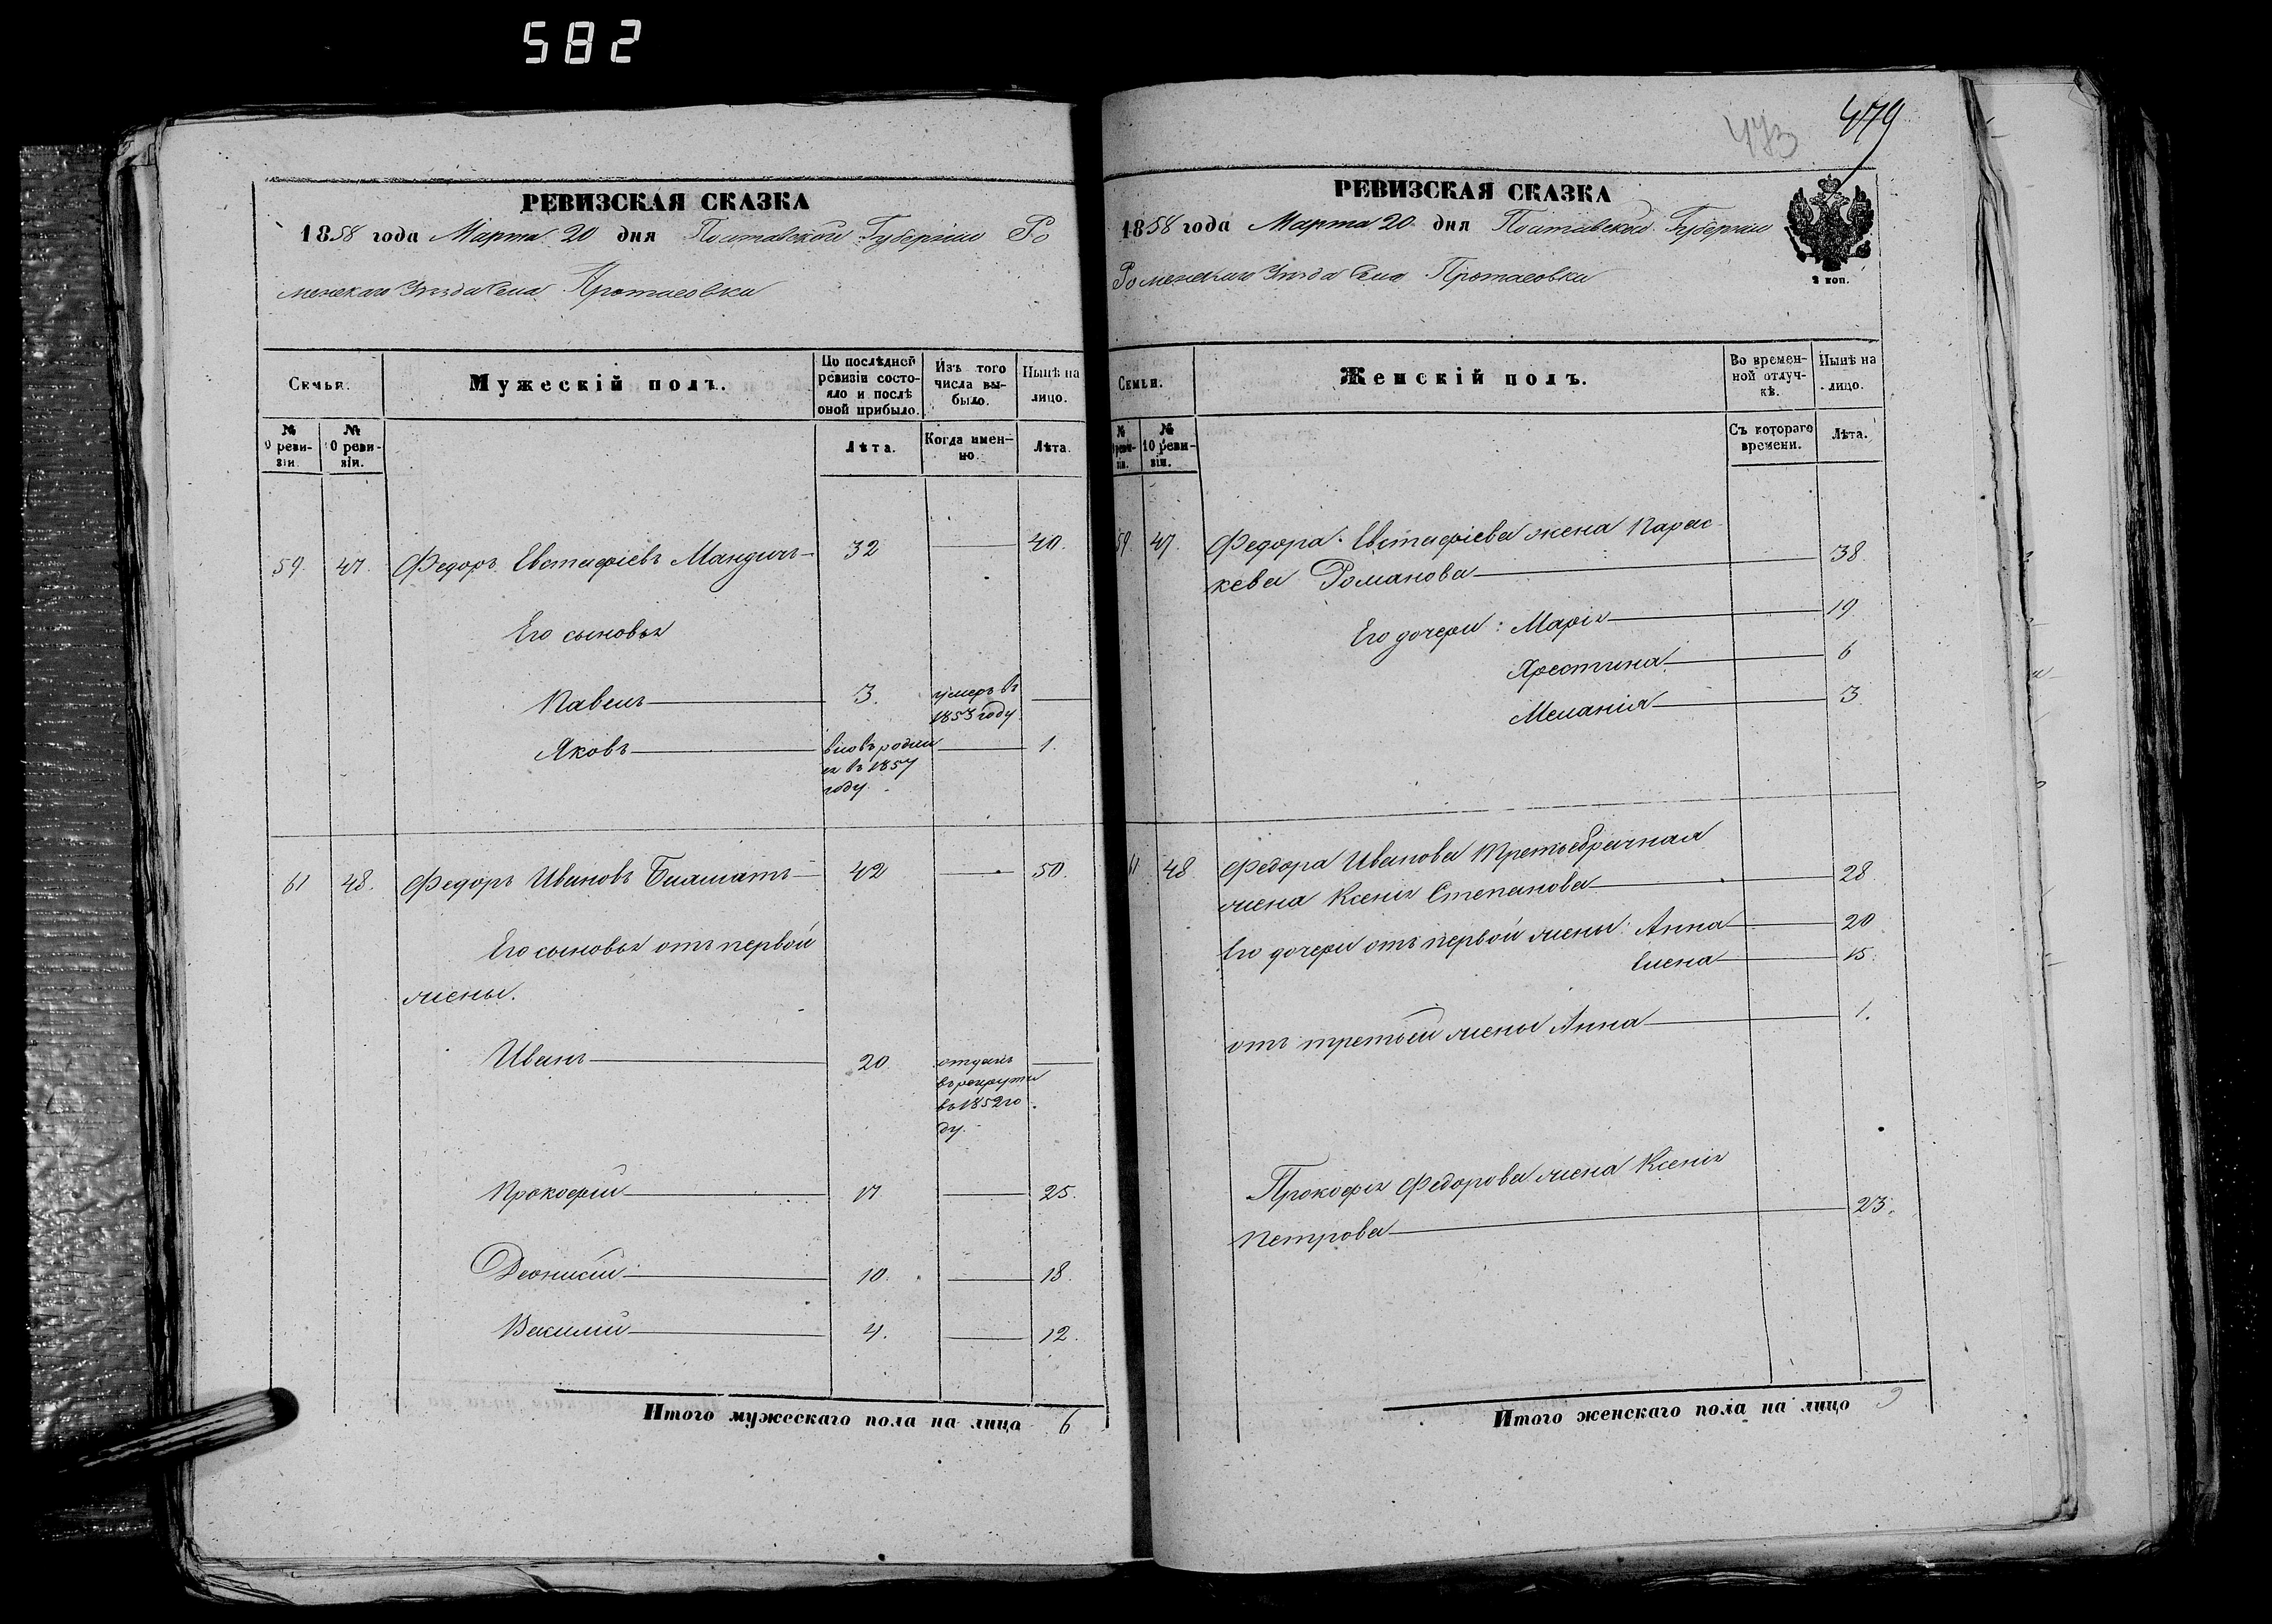 582
РЕВИЗСКАЯ СКАЗКА
1858 года Марта 20 дня Полтавской Губерніи Ро
менскаго Уѣзда Села Протасовки
Семьи.
Мужескій полъ.
По послѣдней ревизіи состояло и послѣ оной прибыло.
Изъ того числа выбыло.
Нынѣ на лицо.
№ 9 ревизіи.
№ 10 ревизіи.
Лѣта.
Когда именно.
Лѣта.
59. 47. Федоръ Евстафіевъ 32 40.
Его сыновья
Павелъ 3. умеръ въ
1853 году
Яковъ вновь родил 1.
ся въ 1857
году.
61 48. Федоръ Ивановъ 42 50.
Его сыновья отъ первой
жены.
Иванъ 20 отданъ
въ рекруты
въ 1852 го
ду.
Прокофий 17 25.
Деонисий 10. 18.
Василий 4. 12.
Итого мужескаго пола на лицо 6
473
479
РЕВИЗСКАЯ СКАЗКА
1858 года Марта 20 дня Полтавской Губерніи
Роменскаго Уѣзда Села Протасовки
2 коп.
Семьи.
Женскій полъ.
Во временной отлучкѣ.
Нынѣ на лицо.
№ 9 ревизіи.
№ 10 ревизіи.
Съ котораго времени.
Лѣта.
59. 47. Федора Евстафіева жена Парас
кева Романова 38.
Его дочери: Марія 19
Хрестина 6
Меланія 3
61 48. Федора Иванова третьебрачная
жена Ксенія Степанова 28
Его дочери отъ первой жены: Анна 20
Елена 15.
отъ третьей жены Анна 1.
Прокофія Федорова жена Ксенія
Петрова 23.
Итого женскаго пола на лицо 9